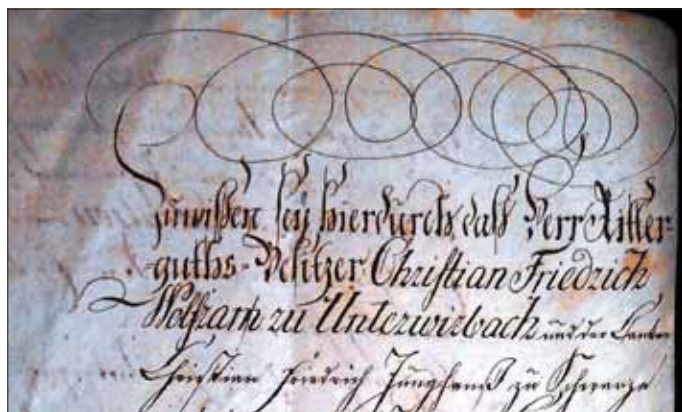 Zuwißen sey hierdurch daß Herr Ritter-
guths-Besitzer Christian Friedrich
Wolfram zu Unterwirbach und der Cantor
Christian Friedrich Junghanß zu Schwarza